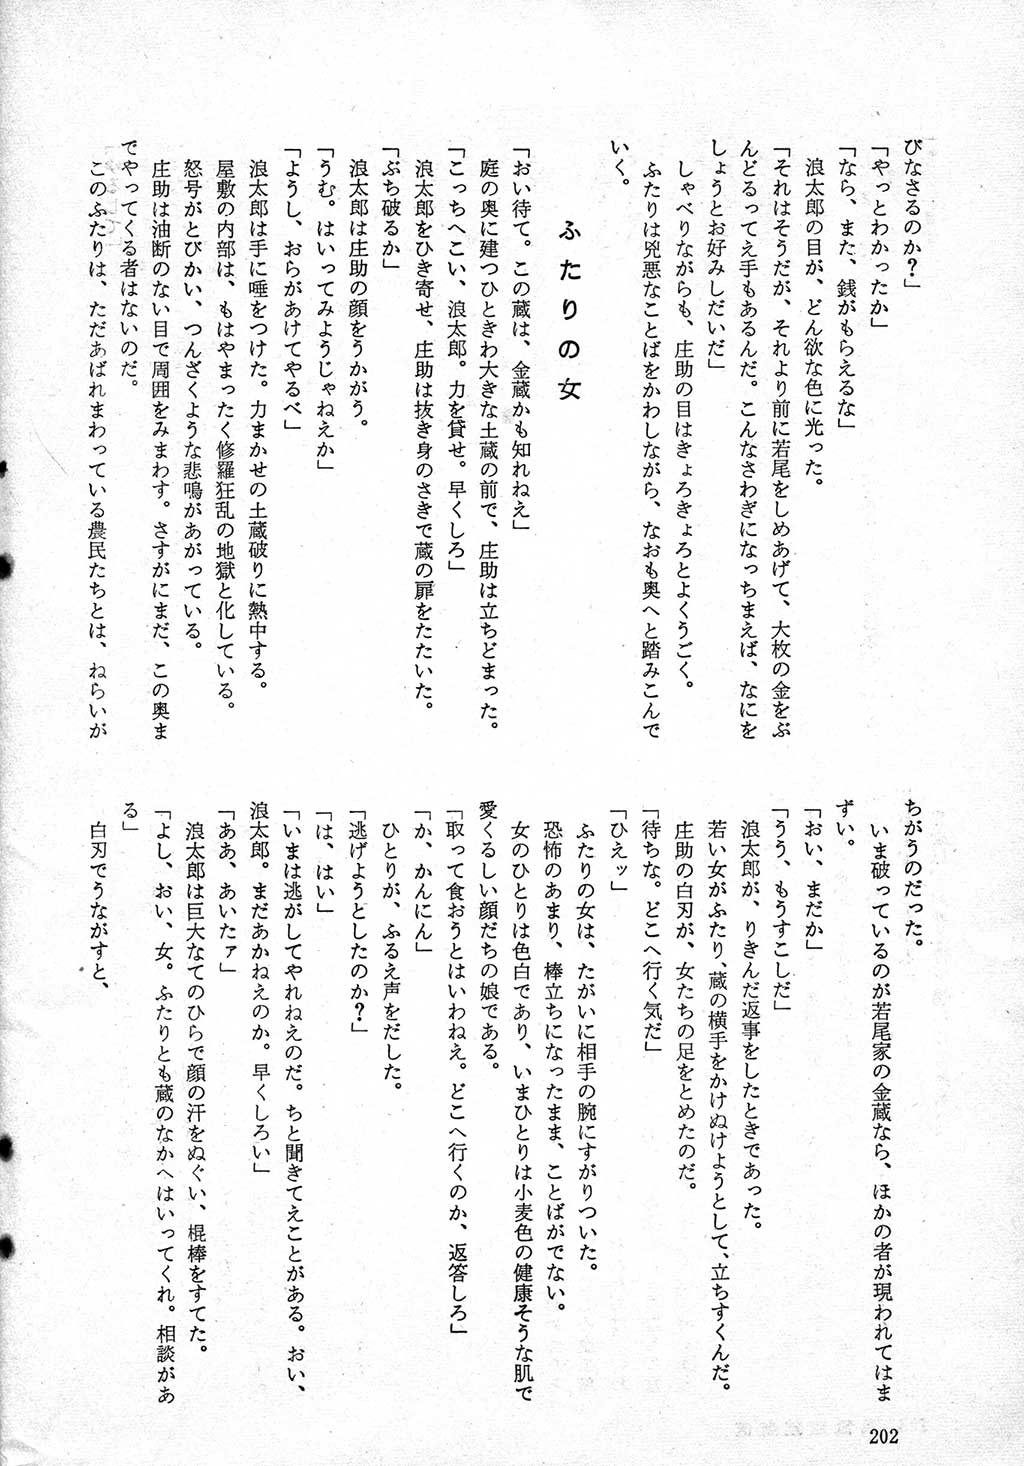 びなさるのか？」
「やっとわかったか」
「なら、また、銭がもらえるな」
浪太郎の目が、どん欲な色に光った。
「それはそうだが、それより前に若尾をしめあげて、大枚の金をぶ
んどるってえ手もあるんだ。こんなさわぎになっちまえば、なにを
しょうとお好みしだいだ」
しゃべりながらも、庄助の目はきょろきょろとよくうごく。
ふたりは兇悪なことばをかわしながら、なおも奥へと踏みこんで
いく。
ふたりの女
「おい待て。この蔵は、金蔵かも知れねえ」
庭の奥に建つひときわ大きな土蔵の前で、庄助は立ちどまった。
「こっちへこい、浪太郎。力を貸せ。早くしろ」
浪太郎をひき寄せ、庄助は抜き身のさきで蔵の扉をたたいた。
「ぶち破るか」
浪太郎は庄助の顔をうかがう。
「うむ。はいってみようじゃねえか」
「ようし、おらがあけてやるべ」
浪太郎は手に唾をつけた。力まかせの土蔵破りに熱中する。
屋敷の内部は、もはやまったく修羅狂乱の地獄と化している。
怒号がとびかい、つんざくような悲鳴があがっている。
庄助は油断のない目で周囲をみまわす。さすがにまだ、この奥ま
でやってくる者はないのだ。
このふたりは、ただあばれまわっている農民たちとは、ねらいが
ちがうのだった。
いま破っているのが若尾家の金蔵なら、ほかの者が現われてはま
ずい。
「おい、まだか」
「うう、もうすこしだ」
浪太郎が、りきんだ返事をしたときであった。
若い女がふたり、蔵の横手をかけぬけようとして、立ちすくんだ。
庄助の白刃が、女たちの足をとめたのだ。
「待ちな。どこへ行く気だ」
「ひえッ」
ふたりの女は、たがいに相手の腕にすがりついた。
恐怖のあまり、棒立ちになったまま、ことばがでない。
女のひとりは色白であり、いまひとりは小麦色の健康そうな肌で
愛くるしい顔だちの娘である。
「取って食おうとはいわねえ。どこへ行くのか、返答しろ」
「か、かんにん」
ひとりが、ふるえ声をだした。
「逃げようとしたのか？」
「は、はい」
「いまは逃がしてやれねえのだ。ちと聞きてえことがある。おい、
浪太郎。まだあかねえのか。早くしろい」
「ああ、あいたァ」
浪太郎は巨大なてのひらで顔の汗をぬぐい、棍棒をすてた。
「よし、おい、女。ふたりとも蔵のなかへはいってくれ。相談があ
る」
白刃でうながすと、
202